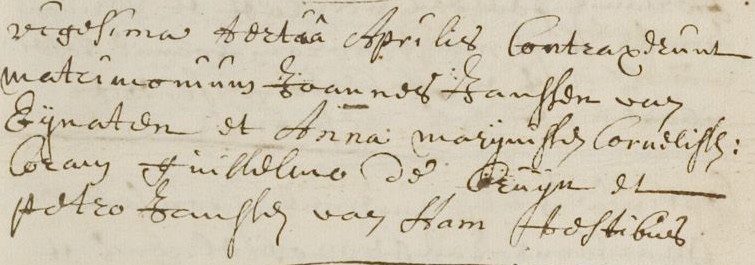 vigesima tertia Aprilis Contraxerunt
matrimonium Joannes Janssen van
Eynaten et Anna marynissen Cornelissen:
Coram Guilhelmo de Bruyn et
petro Janssen van Ham testibus